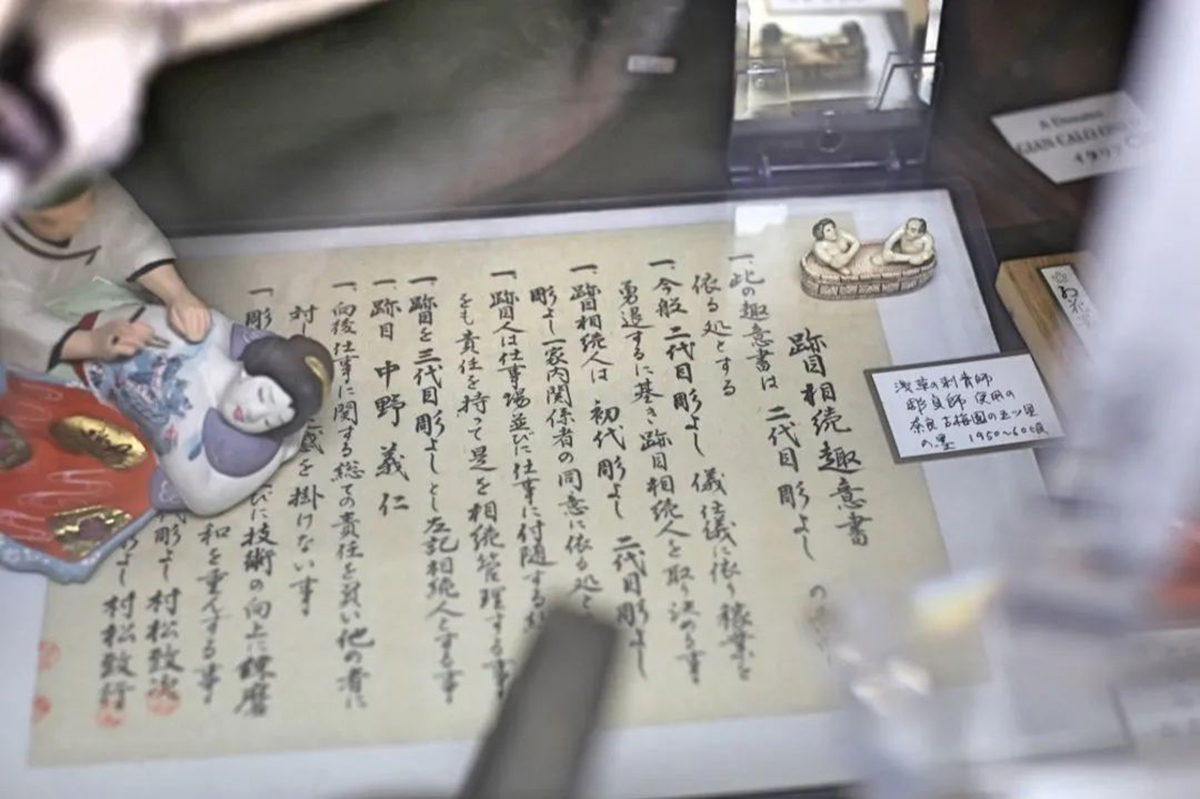 跡目相続趣意書
一、此の趣意書は 二代目彫よし の
依る処とする
一、今般 二代目彫よし 儀 仕儀に依り稼業を
勇退するに基き跡目相続人を取り決める事
一、跡目相続人は 初代彫よし 二代目彫よし
彫よし一家内関係者の同意に依る処と
一、跡目人は仕事場並びに仕事に付随する
をも責任を持って是を相続管理する事
一、跡目を三代目彫よしとし左記相続人とする事
一、跡目 中野義仁
一、向後仕事に関る総ての責任を負い他の者に
対し 惑を掛けない事
一、彫 びに技術の向上に錬磨
和を重んずる事
彫よし 村松
よし 村松
浅草の刺青師
彫貞師 使用の
奈良古梅園の五ツ星
の墨 1950~60頃
A Donato
GIAN CALO
イタリア